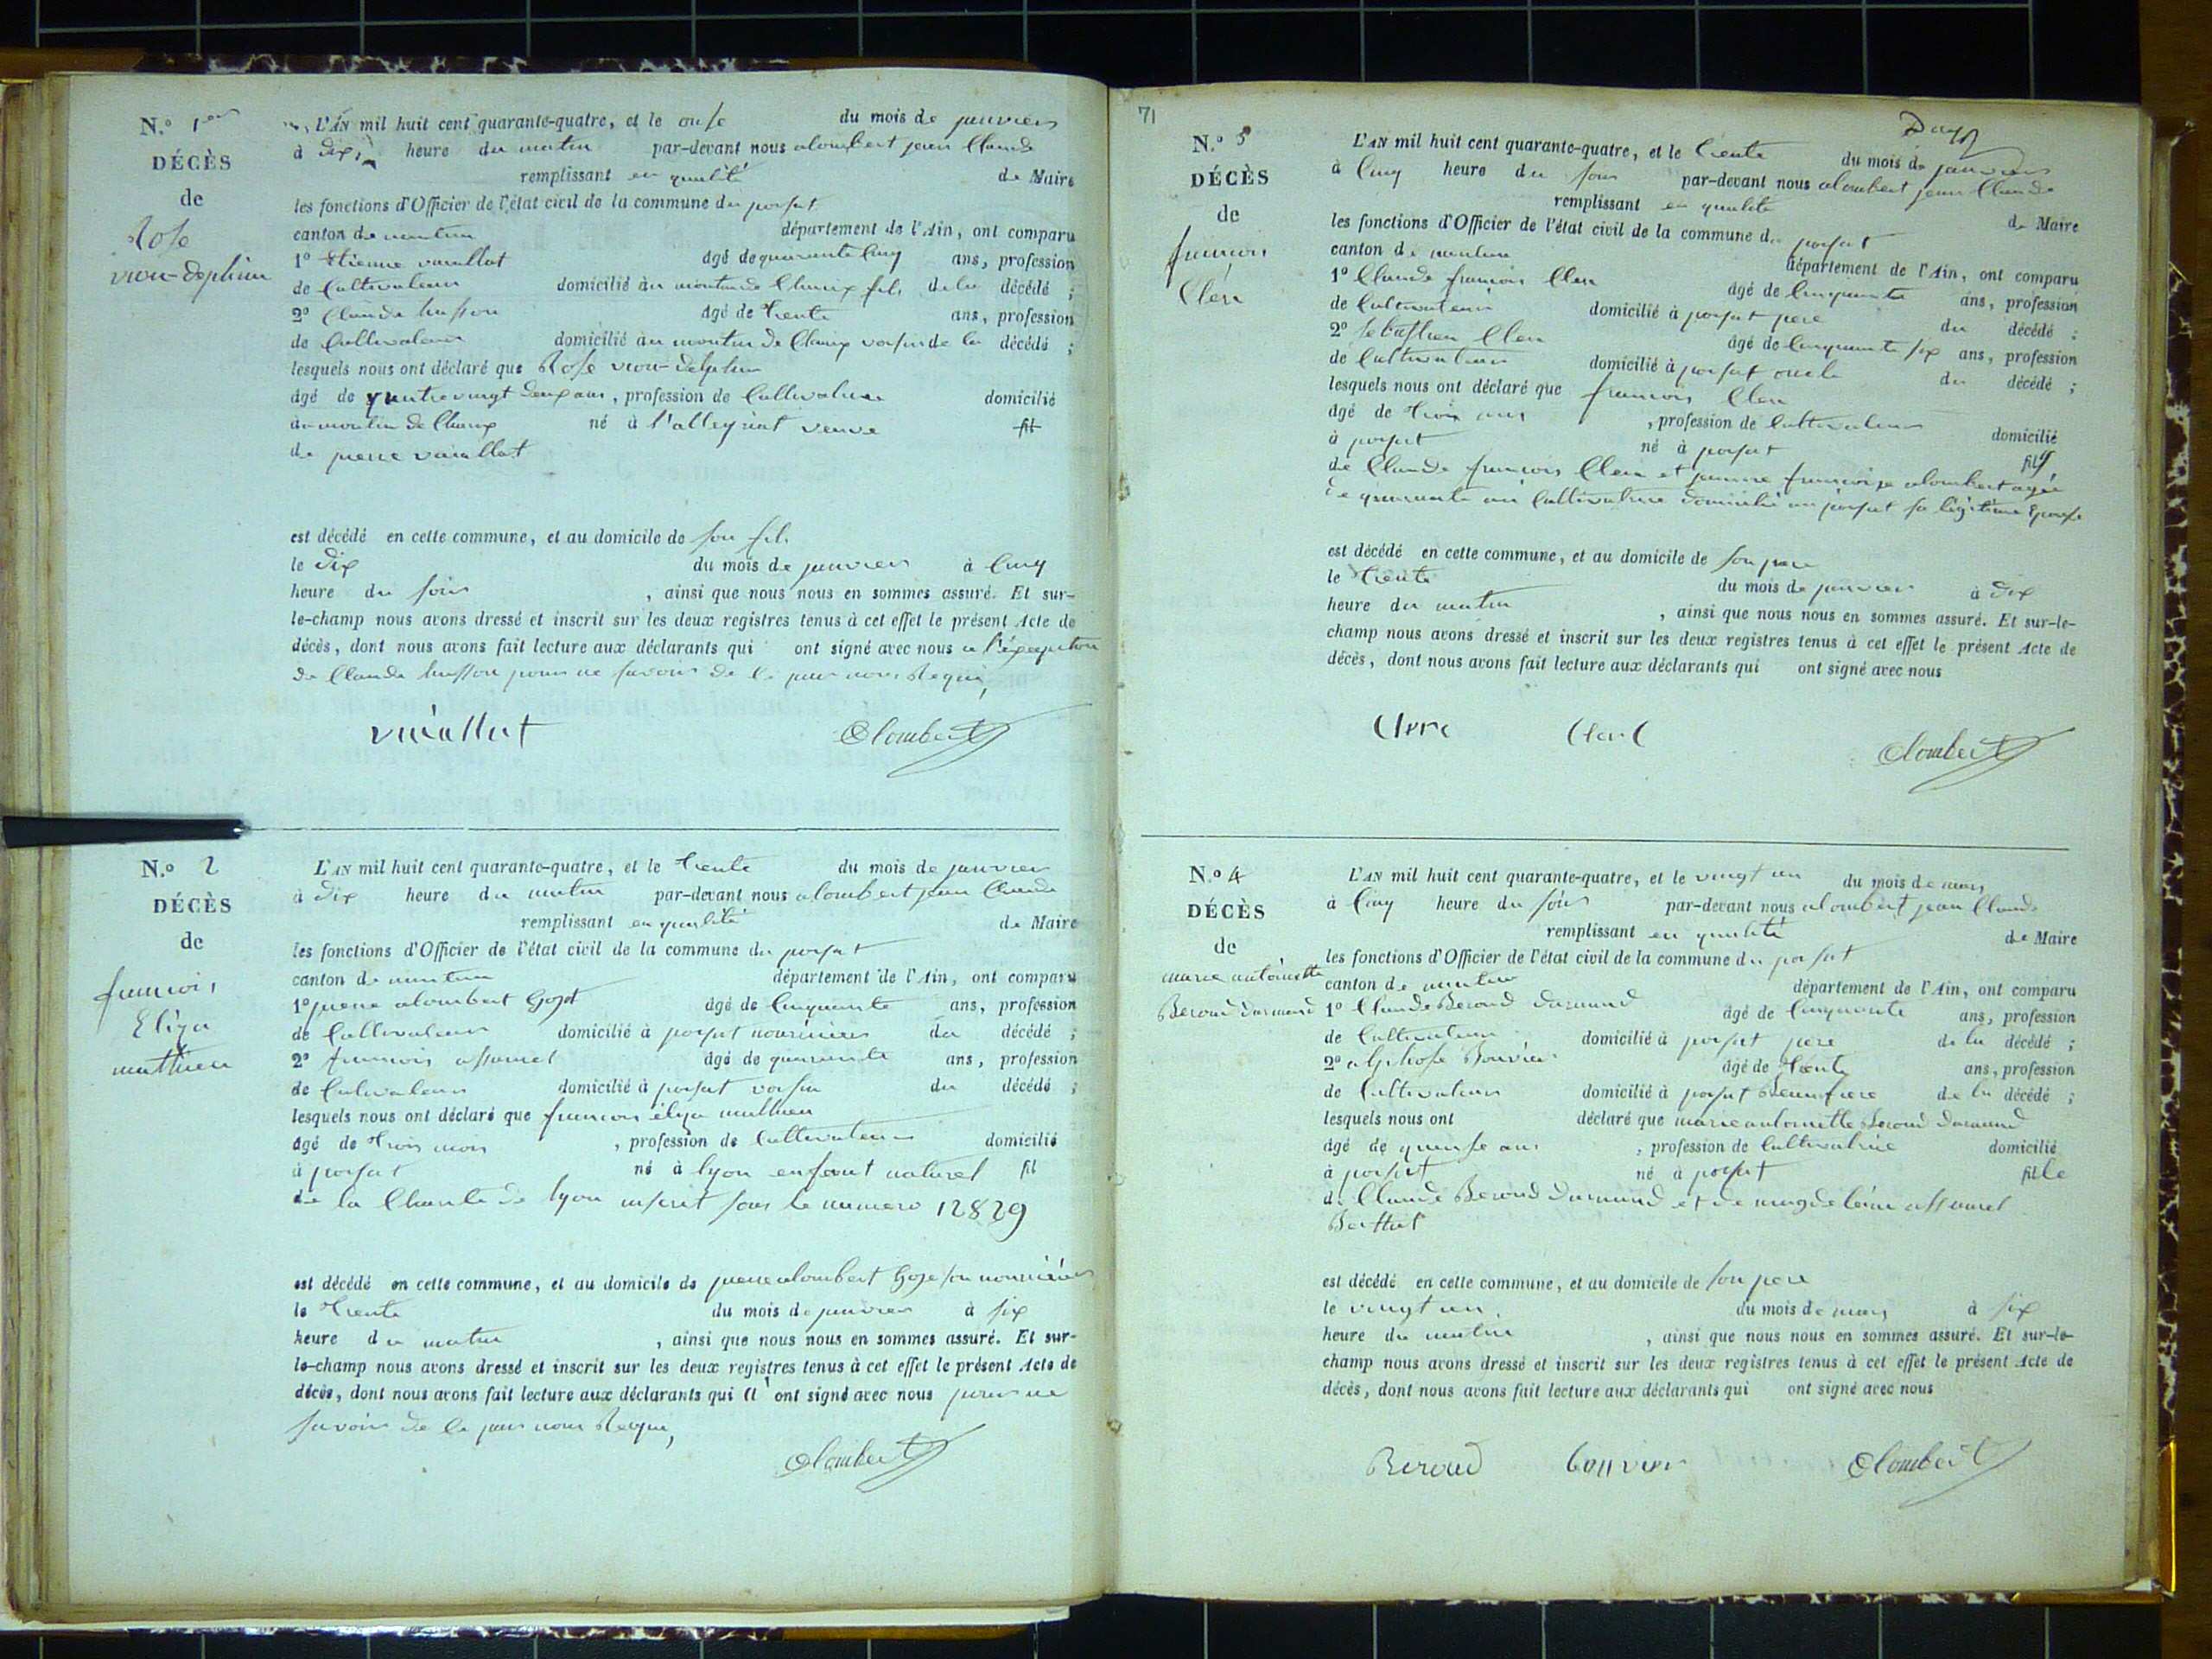 N.° 1er
DÉCÈS
de
Rose
viou-delphin
L'AN mil huit cent quarante-quatre, et le onse du mois de janvier
à dix heure du matin par-devant nous alombert jean Claude
remplissant en qualité de Maire
les fonctions d'Officier de l'état civil de la commune du porsat
canton de nantua département de l'Ain, ont comparu
1° Etienne vuaillat âgé de quarante Cinq ans, profession
de Cultivateur domicilié au moulin de Charix fils de la décédé ;
2° Claude husson âgé de trente ans, profession
de Cultivateur domicilié au moulin de Charix voisin de la décédé ;
lesquels nous ont déclaré que Rose viou-delphin
âgé de quatre vingt deux ans, profession de Cultivatrice domicilié
au moulin de Charix né à l'alleyriat veuve fil
de pierre vuaillat
est décédé en cette commune, et au domicile de son fils
le dix du mois de janvier à Cinq
heure du soir , ainsi que nous nous en sommes assuré. Et sur-
le-champ nous avons dressé et inscrit sur les deux registres tenus à cet effet le présent Acte de
décès, dont nous avons fait lecture aux déclarants qui ont signé avec nous a l'éxception
de Claude husson pour ne savoir de ce par nous Requi,
vuaillat Alombert
N.° 2
DÉCÈS
de
francois
Eliza
mathieu
L'AN mil huit cent quarante-quatre, et le trente du mois de janvier
à dix heure du matin par-devant nous alombert jean Claude
remplissant en qualité de Maire
les fonctions d'Officier de l'état civil de la commune du porsat
canton de nantua département de l'Ain, ont comparu
1° pierre alombert Goget âgé de Cinquante ans, profession
de Cultivateur domicilié à porsat nouricier du décédé ;
2° francois assumel âgé de quarante ans, profession
de Cultivateur domicilié à porsat voisin du décédé ;
lesquels nous ont déclaré que francois éliza mathieu
âgé de trois mois , profession de Cultivateur domicilié
à porsat né à lyon enfant naturel fil
de la Charité de lyon inscrit sous le numero 12829
est décédé en cette commune, et au domicile de pierre alombert Goge son nouricier
le trente du mois de janvier à six
heure du matin , ainsi que nous nous en sommes assuré. Et sur-
le-champ nous avons dressé et inscrit sur les deux registres tenus à cet effet le présent Acte de
décès, dont nous avons fait lecture aux déclarants qui ont signé avec nous pour ne
savoir de ce par nous Requi,
Alombert
71
N.° 3
DÉCÈS
de
francois
Clerc
L'AN mil huit cent quarante-quatre, et le trente du mois de janvier
à Cinq heure du soir par-devant nous alombert jean Claude
remplissant en qualité de Maire
les fonctions d'Officier de l'état civil de la commune du porsat
canton de nantua département de l'Ain, ont comparu
1° Claude francois Clerc âgé de Cinquante ans, profession
de Cultivateur domicilié à porsat pere du décédé ;
2° sebastien Clerc âgé de Cinquante six ans, profession
de Cultivateur domicilié à porsat oncle du décédé ;
lesquels nous ont déclaré que francois Clerc
âgé de trois ans , profession de Cultivateur domicilié
à porsat né à porsat fils
de Claude francois Clerc et jeanne francoise alombert agée
de quarante ans Cultivatrice domicilié au porsat sa légitime Epouse
est décédé en cette commune, et au domicile de son pere
le trente du mois de janvier à dix
heure du matin , ainsi que nous nous en sommes assuré. Et sur-le-
champ nous avons dressé et inscrit sur les deux registres tenus à cet effet le présent Acte de
décès, dont nous avons fait lecture aux déclarants qui ont signé avec nous
Clerc Clerc Alombert
N.° 4
DÉCÈS
de
marie antoinette
Beroud darmand
L'AN mil huit cent quarante-quatre, et le vingt un du mois de mars
à Cinq heure du soir par-devant nous alombert jean Claude
remplissant en qualité de Maire
les fonctions d'Officier de l'état civil de la commune du porsat
canton de nantua département de l'Ain, ont comparu
1° Claude Beroud darmand âgé de Cinquante ans, profession
de Cultivateur domicilié à porsat pere de la décédé ;
2° alphose Bouvier âgé de trente ans, profession
de Cultivateur domicilié à porsat Beaufrere de la décédé ;
lesquels nous ont déclaré que marie antoinette Beroud darmand
âgé de quinse ans , profession de Cultivatrice domicilié
à porsat né à porsat fille
de Claude Beroud darmand et de magdelaine assumel
est décédé en cette commune, et au domicile de son pere
le vingt un du mois de mars à six
heure du matin , ainsi que nous nous en sommes assuré. Et sur-le-
champ nous avons dressé et inscrit sur les deux registres tenus à cet effet le présent Acte de
décès, dont nous avons fait lecture aux déclarants qui ont signé avec nous
Beroud bouvier Alombert